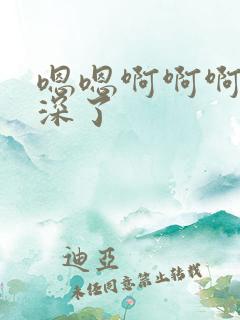 嗯嗯啊啊啊
深了
迪亞
未经同意禁止转载